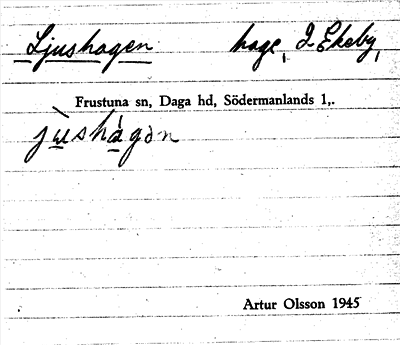 Ljushagen hage, I Ekeby,
Frustuna sn, Daga hd, Södermanlands l,.
jùshágən
Artur Olsson 1945